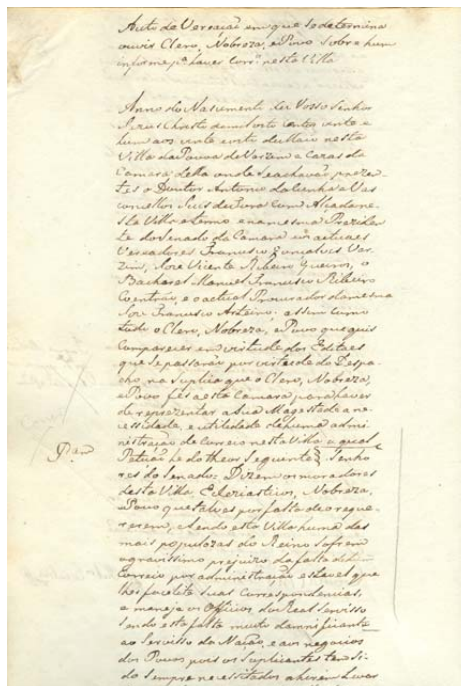 Auto de Vereação em que se determina
ouvir Clero, Nobreza, e Povo sobre hum
informe pª haver Corrº nesta Villa
Anno do Nascimento de Nosso Senhor
Jezus Christo de mil oito centos vinte e
hum aos vinte e oito de Maio nesta
Villa da Povoa de Varzim e Cazas da
Camara della onde se achavão prezen-
tes o Doutor Antonio da Cunha e Vas
concellos Juis de Fora com Alçada nes-
ta Villa e termo e na mesma Preziden
te do Senado da Camara os actuaes
Vereadores Francisco Gonçalves Var
zim, Jose Vicente Ribeiro Queiros, o
Bacharel Manuel Francisco Ribeiro
Coentrão, e o actual Procurador da mesma
Jose Francisco Arteiro; assim como
todo o Clero, Nobreza, e Povo que quis
Comparecer em virtude dos Editaes
que se passarão por virtude do Despa-
cho na Suplica que o Clero, Nobreza,
e Povo fes a esta Camara para haver
de reprezentar a Sua Magestade a ne-
cessidade, e utilidade de huma admi-
nistração de Correio nesta Villa, a qual
Pam
Petição he do theor Seguinte § Senho
res do Senado: Dizem os moradores
desta Villa, Ecleziasticos, Nobreza,
e Povo que talves por falta de o reque-
rerem, e sendo esta Villa huma das
mais populozas do Reino sofrem
o gravissimo prejuizo da falta de hum
Correio por administração estavel que
lhes facelite suas Correspondencias,
e maneje os Officios do Real Servisso
sendo esta falta muito damnificante
ao Servisso da Nação, e aos negocios
dos Povos pois os Suplicantes tem si-
do sempre necessitados a hirem